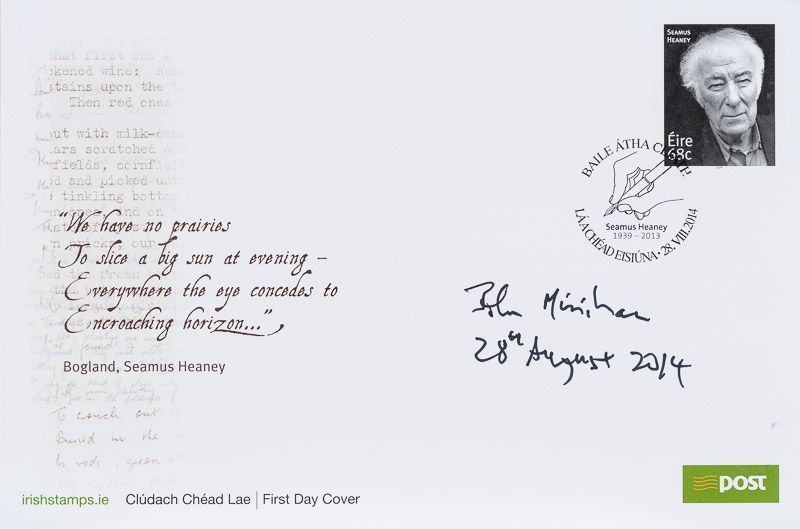 SEAMUS
HEANEY
Éire
68c
BAILE ÁTHA CLIATH
Seamus Heaney
1939 – 2013
LÁ A CHÉAD EISIÚNA · 28.VIII.2014
that first one
wine:
stains upon the
Then red ones
out with milk-cans
scratched and
fields, cornfields
and picked until
tinkling bottom
"We have no prairies
To slice a big sun at evening –
Everywhere the eye concedes to
Encroaching horizon..."
Bogland, Seamus Heaney
To crouch out of
Buried in the
In rods, green
John Minihan
28th August 2014
irishstamps.ie Clúdach Chéad Lae | First Day Cover
post